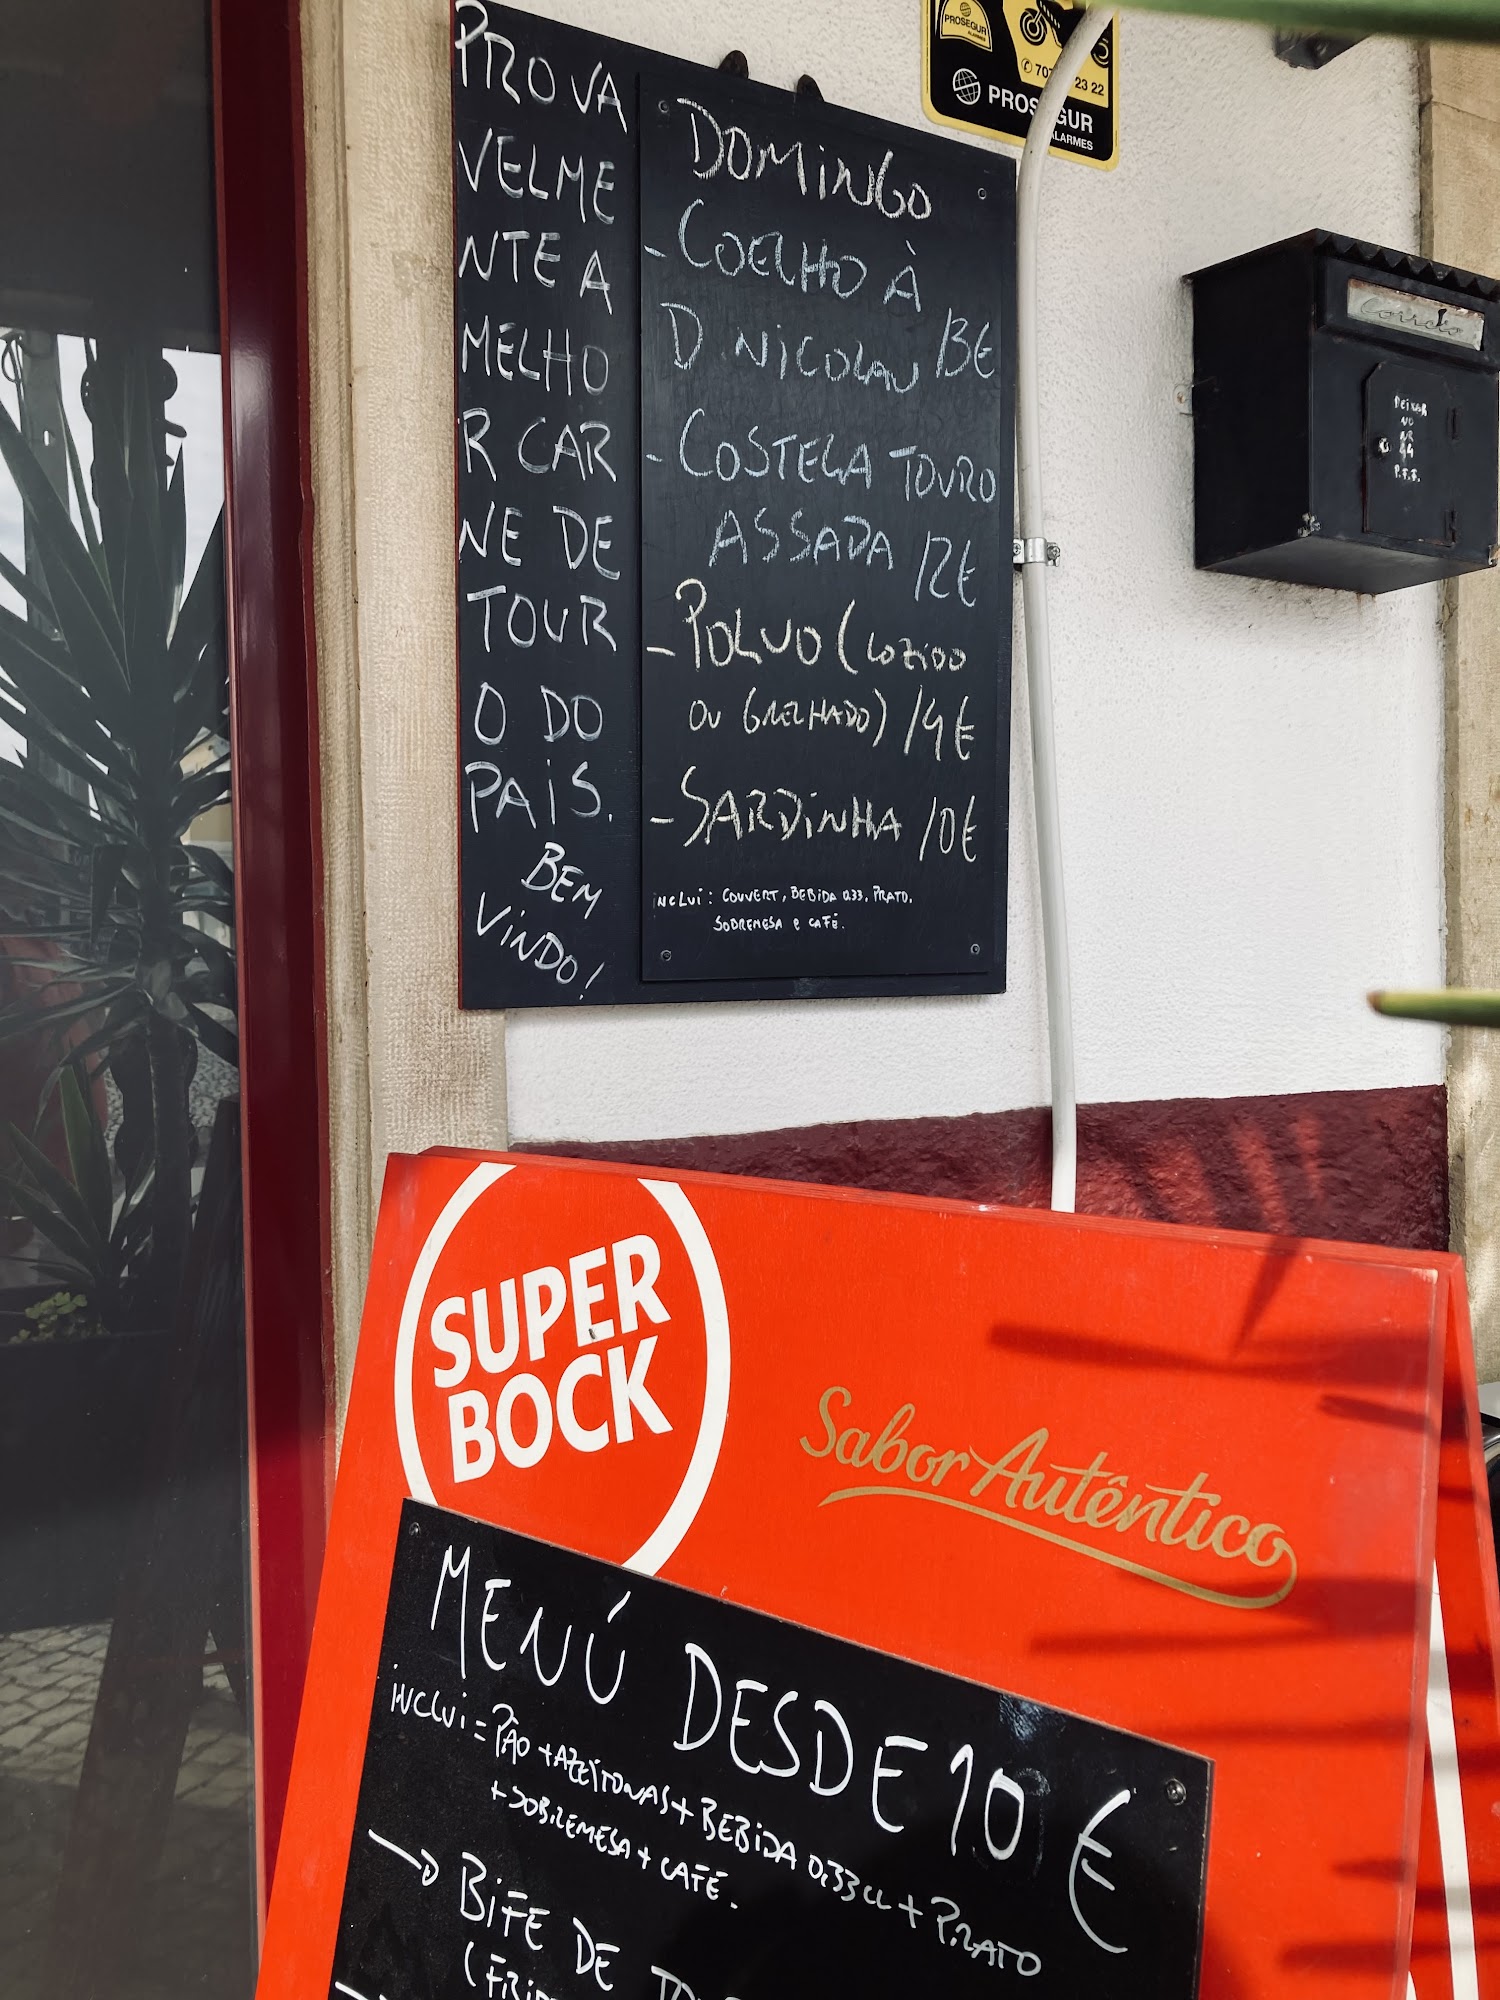 PROVA
VELME
NTE A
MELHO
R CAR
NE DE
TOUR
O DO
PAÍS.
BEM
VINDO!
DOMINGO
- COELHO À
D NICOLAU 13€
- COSTELA TOURO
ASSADA 12€
- POLVO (COZIDO
OU GRELHADO) 14€
- SARDINHA 10€
INCLUI: COUVERT, BEBIDA 0.33, PRATO,
SOBREMESA E CAFÉ.
PROSEGUR
ALARMES
707 23 22
PROSEGUR
ALARMES
Correio
DEIXAR
NO
NR
44
P.F.F.
SUPER
BOCK
Sabor Autêntico
MENÚ DESDE 10€
INCLUI = PÃO + AZEITONAS + BEBIDA 0,33CL + PRATO
+ SOBREMESA + CAFÉ.
→ BIFE DE